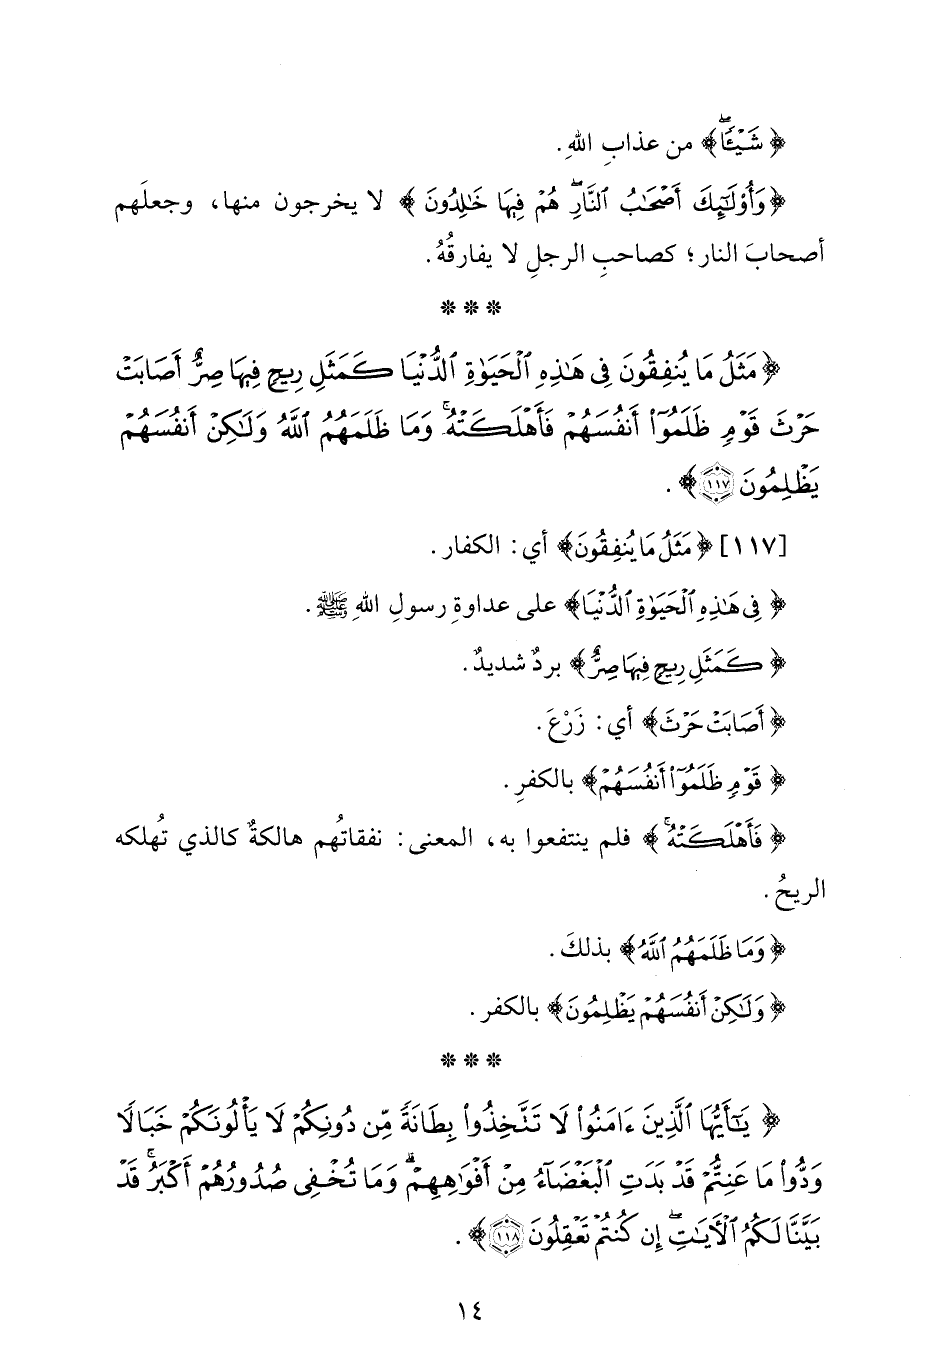 ﴿شَيْـًٔاۖ﴾ من عذابِ اللهِ.
﴿وَأُوْلَـٰٓئِكَ أَصْحَـٰبُ ٱلنَّارِۖ هُمْ فِيهَا خَـٰلِدُونَ﴾ لا يخرجون منها، وجعلَهم
أصحابَ النار؛ كصاحبِ الرجلِ لا يفارقُهُ.
* * *
﴿مَثَلُ مَا يُنفِقُونَ فِى هَـٰذِهِ ٱلْحَيَوٰةِ ٱلدُّنْيَا كَمَثَلِ رِيحٍ فِيهَا صِرٌّ أَصَابَتْ
حَرْثَ قَوْمٍ ظَلَمُوٓاْ أَنفُسَهُمْ فَأَهْلَكَتْهُۚ وَمَا ظَلَمَهُمُ ٱللَّهُ وَلَـٰكِنْ أَنفُسَهُمْ
يَظْلِمُونَ ١١٧﴾.
[١١٧] ﴿مَثَلُ مَا يُنفِقُونَ﴾ أي: الكفار.
﴿فِى هَـٰذِهِ ٱلْحَيَوٰةِ ٱلدُّنْيَا﴾ على عداوةِ رسولِ اللهِ ﷺ.
﴿كَمَثَلِ رِيحٍ فِيهَا صِرٌّ﴾ بردٌ شديدٌ.
﴿أَصَابَتْ حَرْثَ﴾ أي: زَرْعَ.
﴿قَوْمٍ ظَلَمُوٓاْ أَنفُسَهُمْ﴾ بالكفرِ.
﴿فَأَهْلَكَتْهُۚ﴾ فلم ينتفعوا به، المعنى: نفقاتُهم هالكةٌ كالذي تُهلكه
الريحُ.
﴿وَمَا ظَلَمَهُمُ ٱللَّهُ﴾ بذلكَ.
﴿وَلَـٰكِنْ أَنفُسَهُمْ يَظْلِمُونَ﴾ بالكفر.
* * *
﴿يَـٰٓأَيُّهَا ٱلَّذِينَ ءَامَنُواْ لَا تَتَّخِذُواْ بِطَانَةً مِّن دُونِكُمْ لَا يَأْلُونَكُمْ خَبَالًا
وَدُّواْ مَا عَنِتُّمْ قَدْ بَدَتِ ٱلْبَغْضَآءُ مِنْ أَفْوَٰهِهِمْ وَمَا تُخْفِى صُدُورُهُمْ أَكْبَرُۚ قَدْ
بَيَّنَّا لَكُمُ ٱلْـَٔايَـٰتِۖ إِن كُنتُمْ تَعْقِلُونَ ١١٨﴾.
١٤